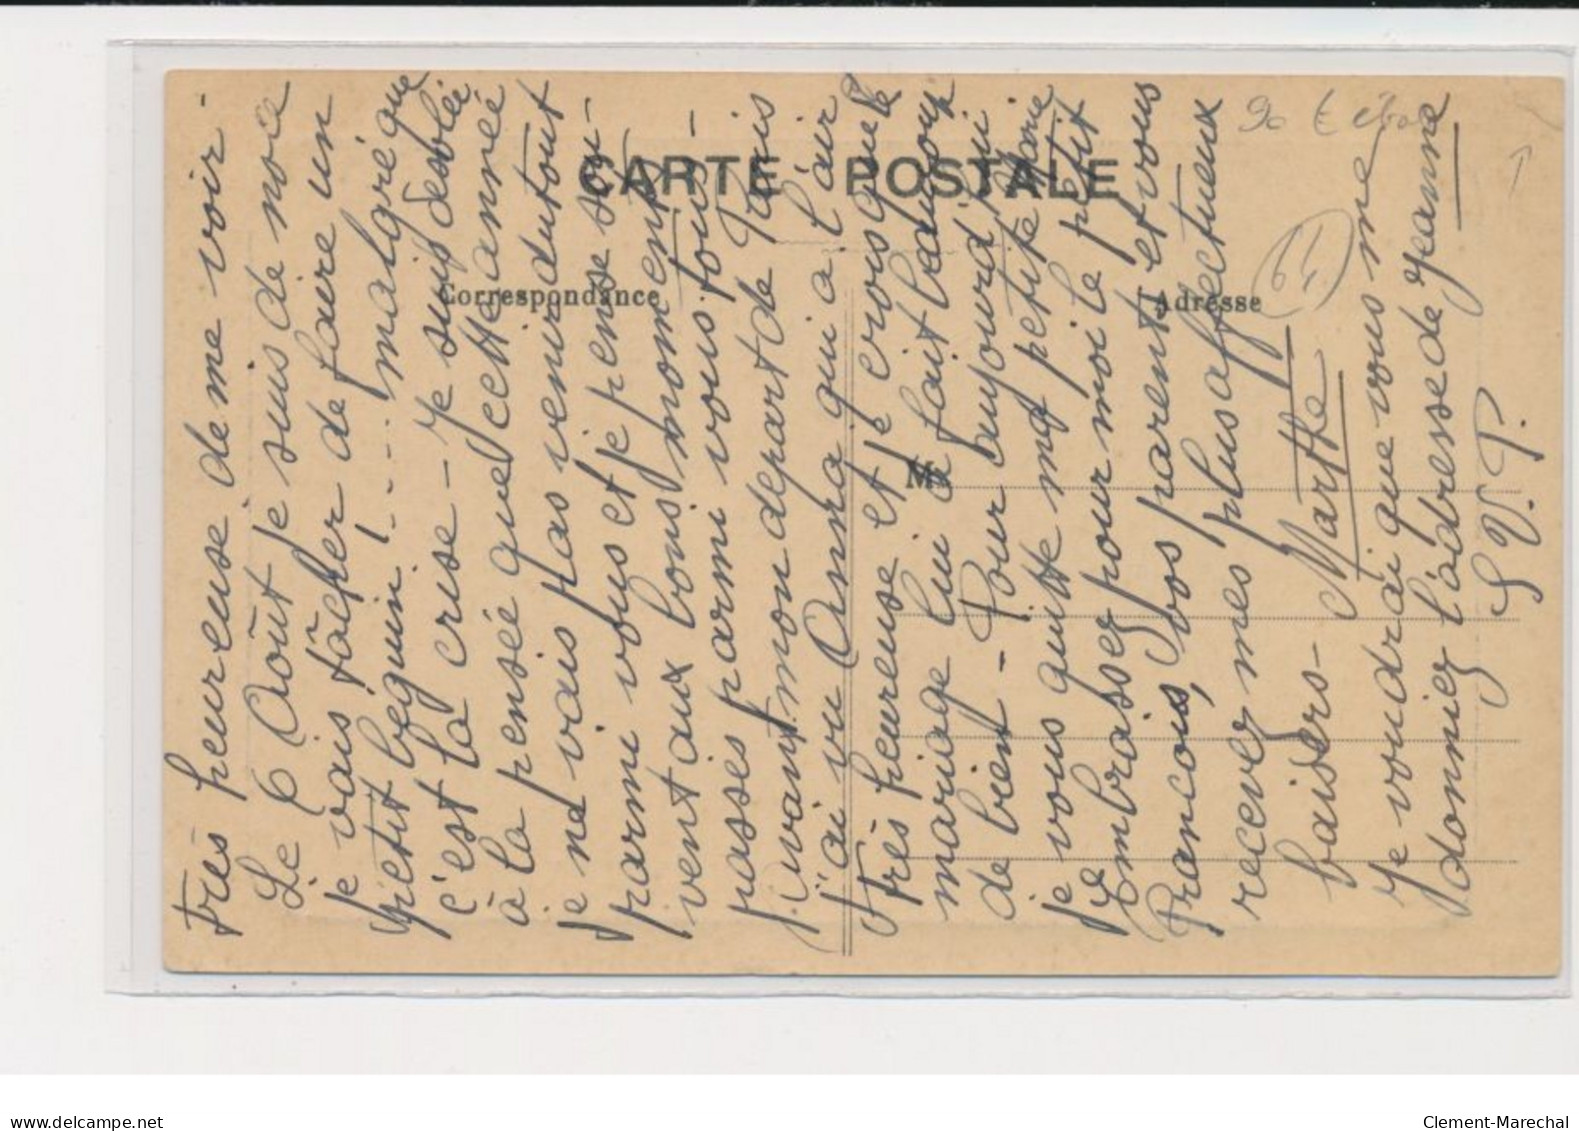 CARTE POSTALE
Correspondance
Adresse
M
très heureuse de me voir -
Le 6 Août je suis de noce
je vais tâcher de faire un
petit beguin ! - - - malgré que
c'est la crise - Je suis desolée
à la pensée que cette année
je ne vais pas venir du tout
parmi vous et je pense sou-
vent aux bons moments
passés parmi vous tous -
Avant mon depart de Paris
j'ai vu Anna qui a l'air
très heureuse et je crois que le
mariage lui a fait beaucoup
de bien - Pour aujourd'hui
je vous quitte ma petite Marie
Embrassez pour moi le petit
François, vos parents et vous
recevez mes plus affectueux
baisers - Marthe
Je voudrai que vous me
donniez l'adresse de Jeanne
S.V.P.
90
64
very.market.com
Clement-Marechal